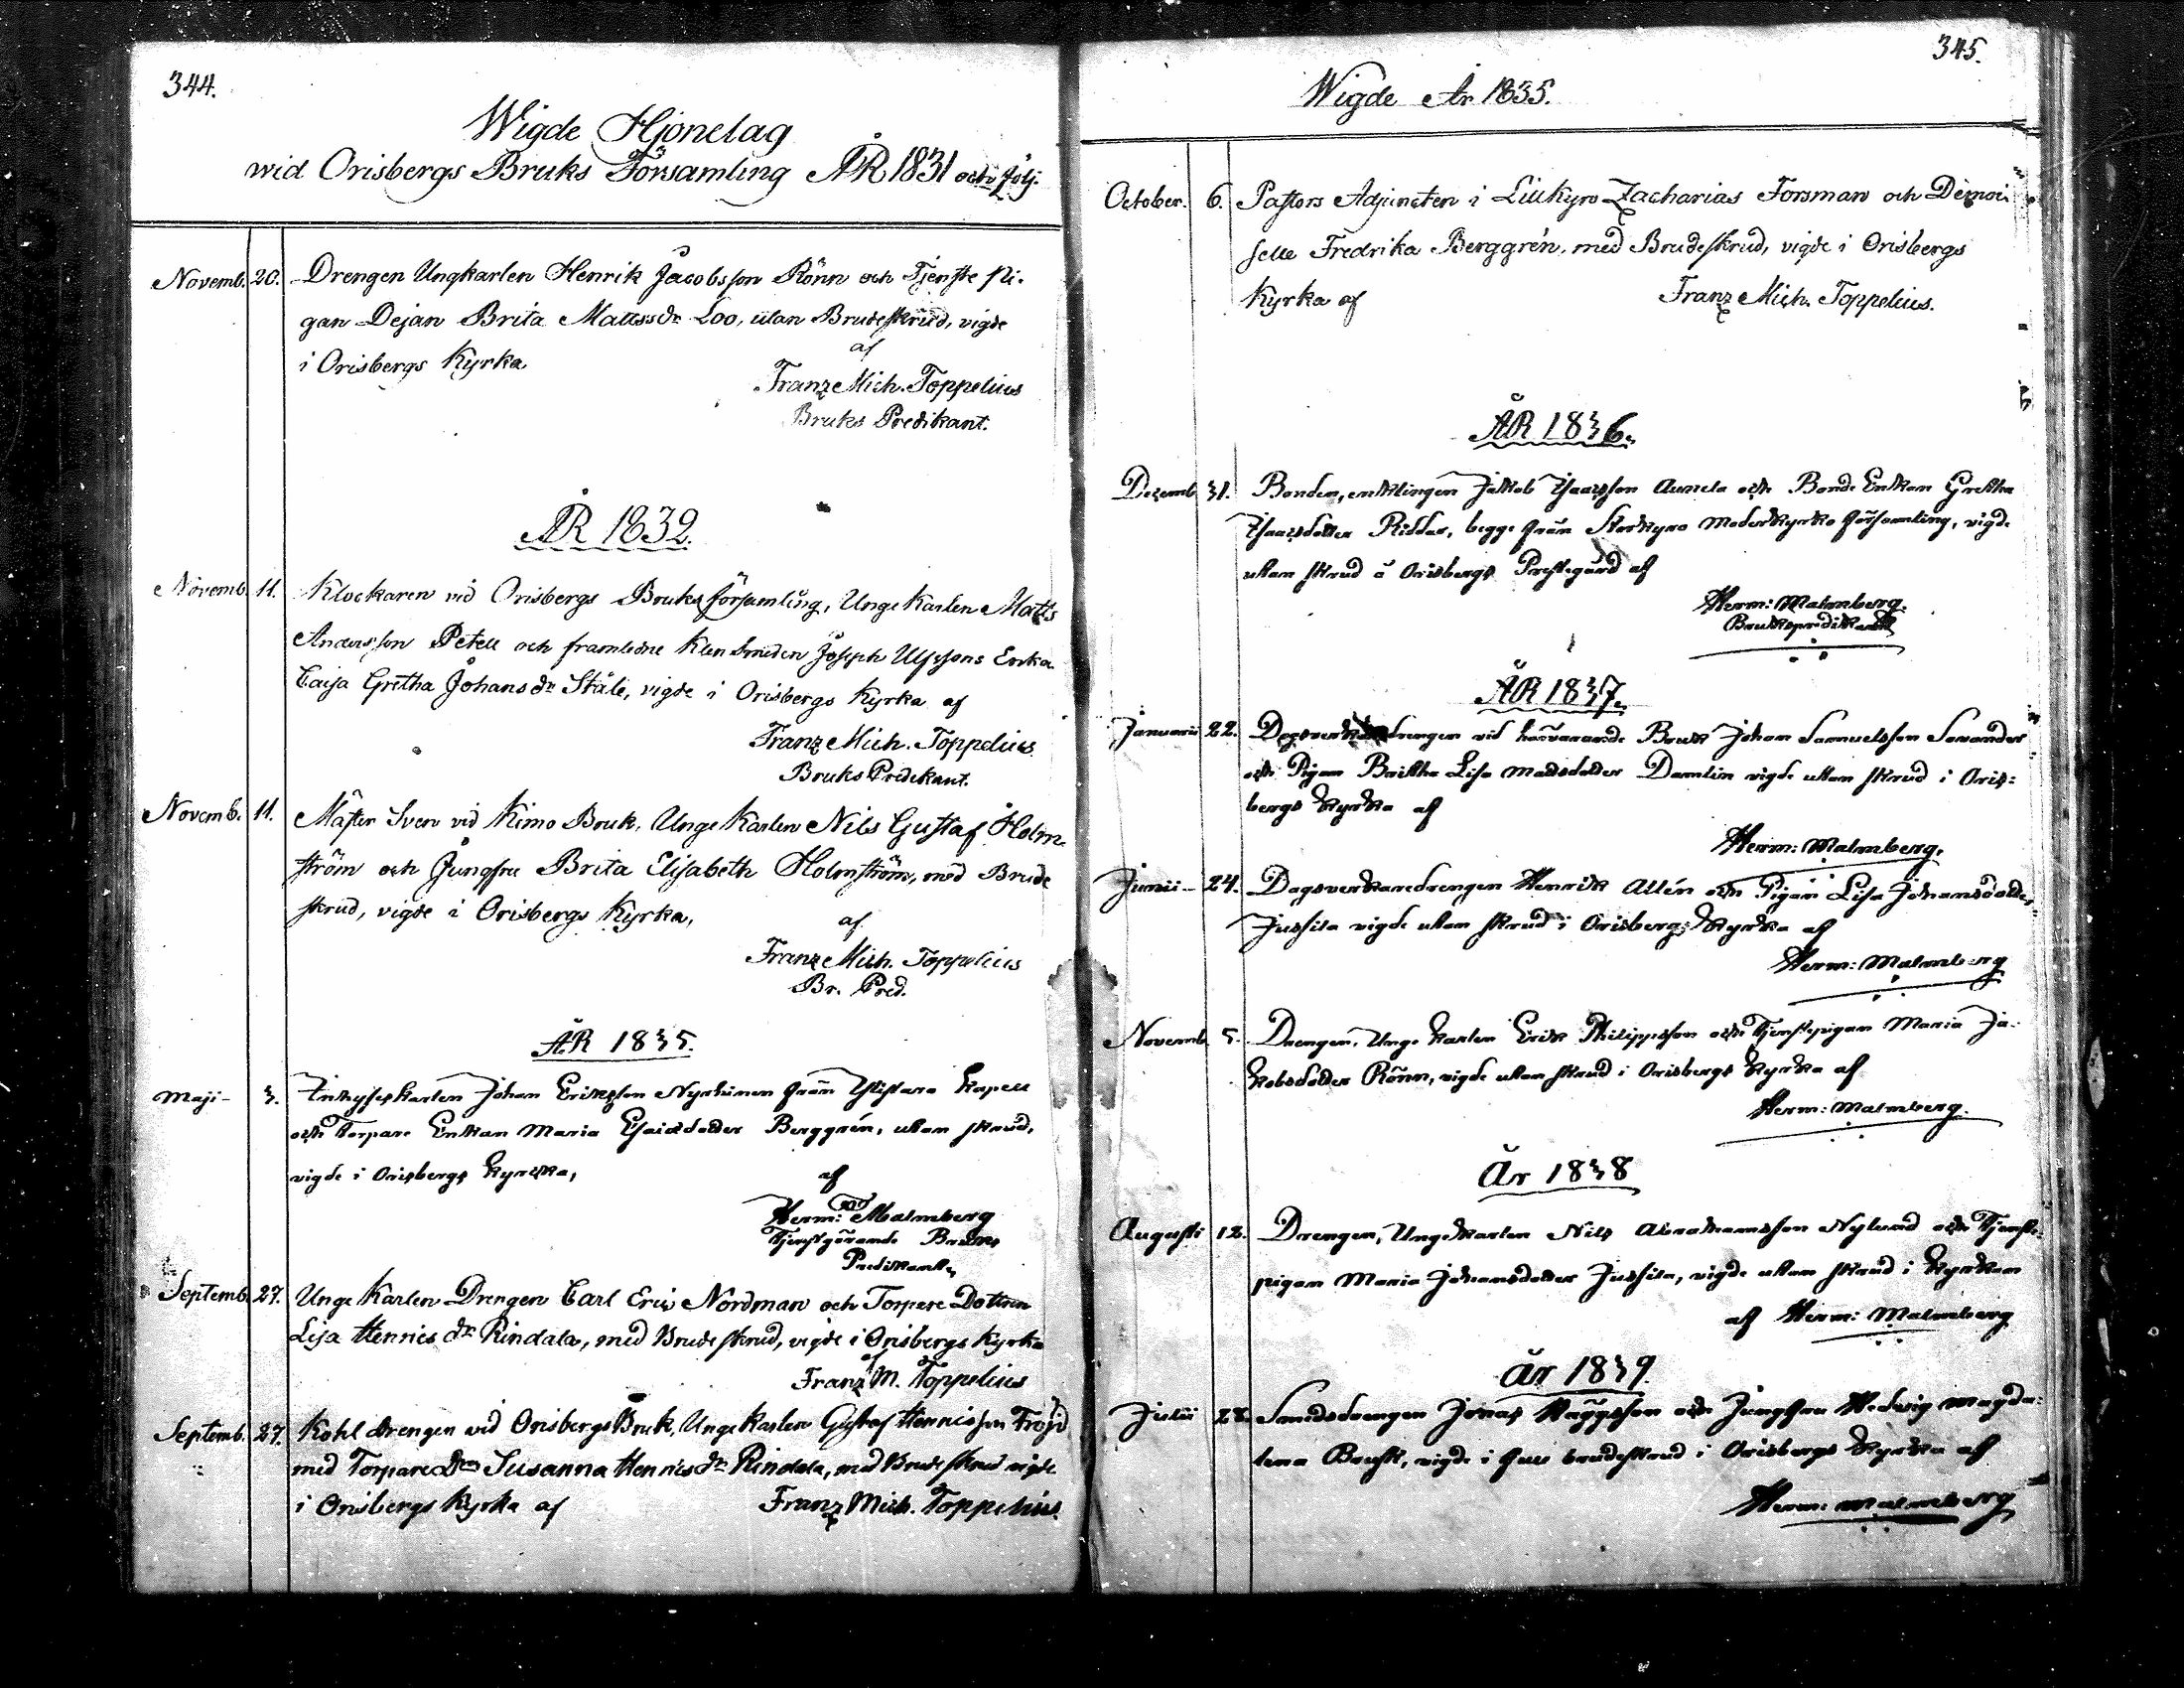 344.
Wigde Hjonelag
wid Orisbergs Bruks Församling ÅR 1831 och följ.
Novemb. 20. Drengen Ungkarlen Henrik Jacobsson Rönn och Tjenste Pi-
gan Dejan Brita Mattsdr Loo, utan Brudeskrud, vigde
i Orisbergs Kyrka af
Franz Mich. Toppelius
Bruks Predikant.
ÅR 1832.
Novemb. 11. Klockaren vid Orisbergs Bruks församling, Unge Karlen Matts
Andersson Petell och framledne Klensmeden Joseph Ulfssons Enka
Caisa Gretha Johansdr Ståle, vigde i Orisbergs Kyrka af
Franz Mich. Toppelius
Bruks Predikant.
Novemb. 11. Mäster Sven vid Kimo Bruk, Unge Karlen Nils Gustaf Holm-
ström och Jungfru Brita Elisabeth Holmström, med Brude
skrud, vigde i Orisbergs Kyrka, af
Franz Mich. Toppelius
Br. Pred.
ÅR 1835.
Maji - 3. Inhyseskarlen Johan Ericsson Nyrhinen från Ylistaro Kapell
och Torpare Enkan Maria Esaiædotter Berggrén, utan skrud,
vigde i Orisbergs Kyrka, af
Herm: Malmberg
Tjenstgörande Bruks
Predikant
Septemb. 27. Unge Karlen Drengen Carl Eric Nordman och Torpare Dottren
Lisa Hennics dr Rindala, med Brudeskrud, vigde i Orisbergs Kyrka
af
Franz M. Toppelius
Septemb. 27. Kohl drengen vid Orisbergs Bruk, Unge Karlen Gustaf Hennicsson Fröjd
med Torpare Susanna Hennics dr Rindala, med Brudeskrud vigde
i Orisbergs Kyrka af Franz Mich. Toppelius.
345.
Wigde År 1835.
October. 6. Pastors Adjuncten i Lillkyro Zacharias Forsman och Demoi-
selle Fredrika Berggrén, med Brudeskrud, vigde i Orisbergs
Kyrka af Franz Mich. Toppelius.
ÅR 1836.
Dezemb. 31. Bonden, enklingen Jakob Isaacsson Aunela och Bonde Enkan Gretha
Isaacsdotter Riddar, begge från Storkyro Moderkyrko församling, vigde
utan skrud å Orisbergs Prestegård af
Herm: Malmberg.
Brukspredikant
ÅR 1837.
Januarii 22. drengen vid härvarande Bruk Johan Samuelsson Savander
och Pigan Britha Lisa Mattsdotter Damlin vigde utan skrud i Oris-
bergs Kyrka af
Herm: Malmberg.
Junii - 24. Dagsverkaredrengen Henrik Allén och Pigan Lisa Johansdotter
Jussila vigde utan skrud i Orisbergs Kyrka af
Herm: Malmberg
Novemb. 5. Drengen, Unge Karlen Erik Philippsson och Tjenstepigan Maria Ja-
kobsdotter Rönn, vigde utan skrud i Orisbergs Kyrka af
Herm: Malmberg.
År 1838
Augusti 12. Drengen, Ungekarlen Nils Abrahamsson Nylund och Tjenste-
pigan Maria Johansdotter Jussila, vigde utan skrud i Kyrkan
af Herm: Malmberg
År 1839.
Julii 28. Smedsdrengen Jonas Häggsson och Jungfru Hedvig Magda-
lena Brusk, vigde i full brudeskrud i Orisbergs Kyrka af
Herm: Malmberg